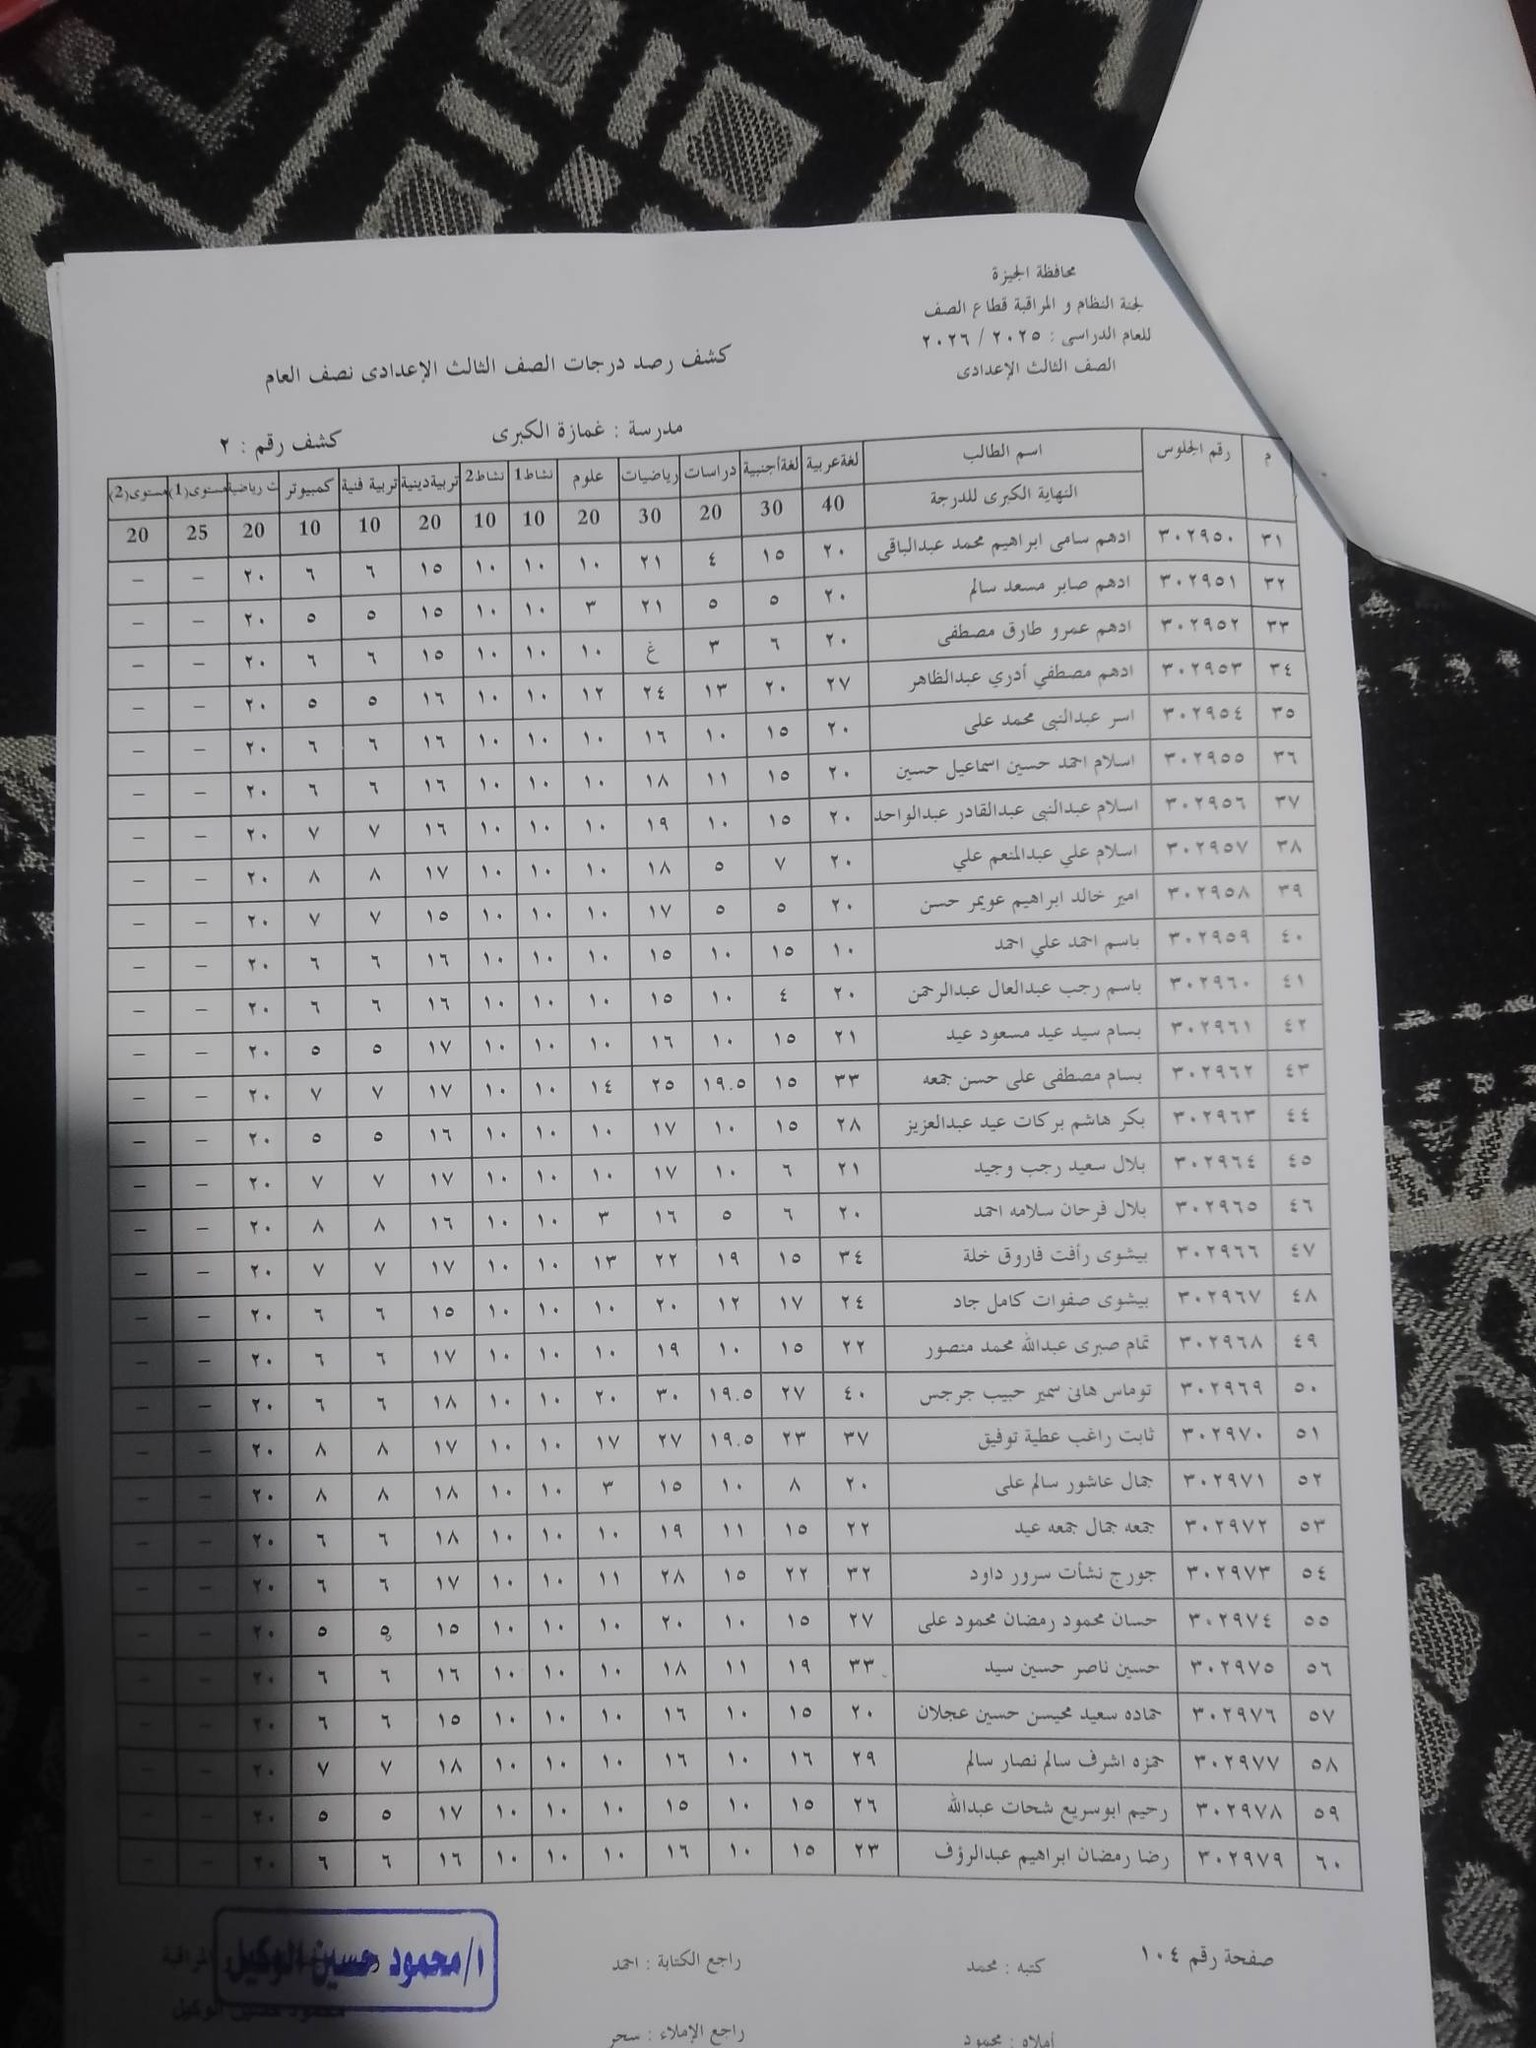 محافظة الجيزة
لجنة النظام و المراقبة قطاع الصف
للعام الدراسى : ٢٠٢٥ / ٢٠٢٦
الصف الثالث الإعدادى
كشف رصد درجات الصف الثالث الإعدادى نصف العام
مدرسة : غمازة الكبرى كشف رقم : ٢
م رقم الجلوس اسم الطالب لغةعربية لغةأجنبية دراسات رياضيات علوم نشاط1 نشاط2 تربيةدينية تربية فنية كمبيوتر ت رياضية مستوى(1) مستوى(2)
النهاية الكبرى للدرجة 40 30 20 30 20 10 10 20 10 10 20 25 20
٣١ ٣٠٢٩٥٠ ادهم سامى ابراهيم محمد عبدالباقى ٢٠ ١٥ ٤ ٢١ ١٠ ١٠ ١٠ ١٥ ٦ ٦ ٢٠ – –
٣٢ ٣٠٢٩٥١ ادهم صابر مسعد سالم ٢٠ ٥ ٥ ٢١ ٣ ١٠ ١٠ ١٥ ٥ ٥ ٢٠ – –
٣٣ ٣٠٢٩٥٢ ادهم عمرو طارق مصطفى ٢٠ ٦ ٣ غ ١٠ ١٠ ١٠ ١٥ ٦ ٦ ٢٠ – –
٣٤ ٣٠٢٩٥٣ ادهم مصطفي أدري عبدالظاهر ٢٧ ٢٠ ١٣ ٢٤ ١٢ ١٠ ١٠ ١٦ ٥ ٥ ٢٠ – –
٣٥ ٣٠٢٩٥٤ اسر عبدالنبى محمد على ٢٠ ١٥ ١٠ ١٦ ١٠ ١٠ ١٠ ١٦ ٦ ٦ ٢٠ – –
٣٦ ٣٠٢٩٥٥ اسلام احمد حسين اسماعيل حسين ٢٠ ١٥ ١١ ١٨ ١٠ ١٠ ١٠ ١٦ ٦ ٦ ٢٠ – –
٣٧ ٣٠٢٩٥٦ اسلام عبدالنبى عبدالقادر عبدالواحد ٢٠ ١٥ ١٠ ١٩ ١٠ ١٠ ١٠ ١٦ ٧ ٧ ٢٠ – –
٣٨ ٣٠٢٩٥٧ اسلام علي عبدالمنعم علي ٢٠ ٧ ٥ ١٨ ١٠ ١٠ ١٠ ١٧ ٨ ٨ ٢٠ – –
٣٩ ٣٠٢٩٥٨ امير خالد ابراهيم عويمر حسن ٢٠ ٥ ٥ ١٧ ١٠ ١٠ ١٠ ١٥ ٧ ٧ ٢٠ – –
٤٠ ٣٠٢٩٥٩ باسم احمد علي احمد ١٠ ١٥ ١٠ ١٥ ١٠ ١٠ ١٠ ١٦ ٦ ٦ ٢٠ – –
٤١ ٣٠٢٩٦٠ باسم رجب عبدالعال عبدالرحمن ٢٠ ٤ ١٠ ١٥ ١٠ ١٠ ١٠ ١٦ ٦ ٦ ٢٠ – –
٤٢ ٣٠٢٩٦١ بسام سيد عيد مسعود عيد ٢١ ١٥ ١٠ ١٦ ١٠ ١٠ ١٠ ١٧ ٥ ٥ ٢٠ – –
٤٣ ٣٠٢٩٦٢ بسام مصطفى على حسن جمعه ٣٣ ١٥ ١٩.٥ ٢٥ ١٤ ١٠ ١٠ ١٧ ٧ ٧ ٢٠ – –
٤٤ ٣٠٢٩٦٣ بكر هاشم بركات عيد عبدالعزيز ٢٨ ١٥ ١٠ ١٧ ١٠ ١٠ ١٠ ١٦ ٥ ٥ ٢٠ – –
٤٥ ٣٠٢٩٦٤ بلال سعيد رجب وجيد ٢١ ٦ ١٠ ١٧ ١٠ ١٠ ١٠ ١٧ ٧ ٧ ٢٠ – –
٤٦ ٣٠٢٩٦٥ بلال فرحان سلامه احمد ٢٠ ٦ ٥ ١٦ ٣ ١٠ ١٠ ١٦ ٨ ٨ ٢٠ – –
٤٧ ٣٠٢٩٦٦ بيشوى رأفت فاروق خلة ٣٤ ١٥ ١٩ ٢٢ ١٣ ١٠ ١٠ ١٧ ٧ ٧ ٢٠ – –
٤٨ ٣٠٢٩٦٧ بيشوى صفوات كامل جاد ٢٤ ١٧ ١٢ ٢٠ ١٠ ١٠ ١٠ ١٥ ٦ ٦ ٢٠ – –
٤٩ ٣٠٢٩٦٨ تمام صبرى عبدالله محمد منصور ٢٢ ١٥ ١٠ ١٩ ١٠ ١٠ ١٠ ١٧ ٦ ٦ ٢٠ – –
٥٠ ٣٠٢٩٦٩ توماس هانى سمير حبيب جرجس ٤٠ ٢٧ ١٩.٥ ٣٠ ٢٠ ١٠ ١٠ ١٨ ٦ ٦ ٢٠ – –
٥١ ٣٠٢٩٧٠ ثابت راغب عطية توفيق ٣٧ ٢٣ ١٩.٥ ٢٧ ١٧ ١٠ ١٠ ١٧ ٨ ٨ ٢٠ – –
٥٢ ٣٠٢٩٧١ جمال عاشور سالم على ٢٠ ٨ ١٠ ١٥ ٣ ١٠ ١٠ ١٨ ٨ ٨ ٢٠ – –
٥٣ ٣٠٢٩٧٢ جمعه جمال جمعه عيد ٢٢ ١٥ ١١ ١٩ ١٠ ١٠ ١٠ ١٨ ٦ ٦ ٢٠ – –
٥٤ ٣٠٢٩٧٣ جورج نشأت سرور داود ٣٢ ٢٢ ١٥ ٢٨ ١١ ١٠ ١٠ ١٧ ٦ ٦ ٢٠ – –
٥٥ ٣٠٢٩٧٤ حسان محمود رمضان محمود على ٢٧ ١٥ ١٠ ٢٠ ١٠ ١٠ ١٠ ١٥ ٥ ٥ ٢٠ – –
٥٦ ٣٠٢٩٧٥ حسين ناصر حسين سيد ٣٣ ١٩ ١١ ١٨ ١٠ ١٠ ١٠ ١٦ ٦ ٦ ٢٠ – –
٥٧ ٣٠٢٩٧٦ حماده سعيد محيسن حسين عجلان ٢٠ ١٥ ١٠ ١٦ ١٠ ١٠ ١٠ ١٥ ٦ ٦ ٢٠ – –
٥٨ ٣٠٢٩٧٧ حمزه اشرف سالم نصار سالم ٢٩ ١٦ ١٠ ١٦ ١٠ ١٠ ١٠ ١٨ ٧ ٧ ٢٠ – –
٥٩ ٣٠٢٩٧٨ رحيم ابوسريع شحات عبدالله ٢٦ ١٥ ١٠ ١٥ ١٠ ١٠ ١٠ ١٧ ٥ ٥ ٢٠ – –
٦٠ ٣٠٢٩٧٩ رضا رمضان ابراهيم عبدالرؤف ٢٣ ١٥ ١٠ ١٦ ١٠ ١٠ ١٠ ١٦ ٦ ٦ ٢٠ – –
صفحة رقم ١٠٤ كتبه : محمد راجع الكتابة : احمد المراقبة
ا/محمود حسين الوكيل
أملاه : محمود راجع الإملاء : سحر محمود حسين الوكيل